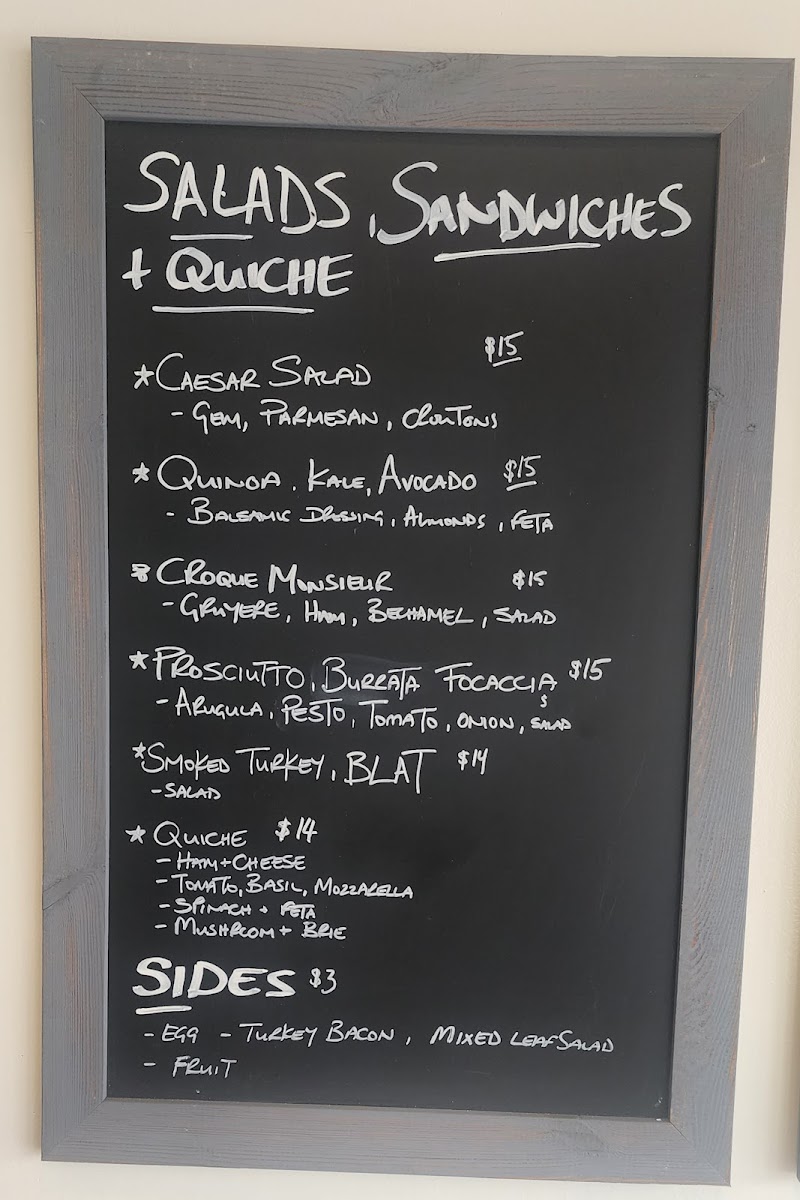 SALADS, SANDWICHES
+ QUICHE
* CAESAR SALAD $15
- GEM, PARMESAN, CROUTONS
* QUINOA. KALE, AVOCADO $15
- BALSAMIC DRESSING, ALMONDS, FETA
* CROQUE MONSIEUR $15
- GRUYERE, HAM, BECHAMEL, SALAD
* PROSCIUTTO, BURRATA FOCACCIA $15
- ARUGULA, PESTO, TOMATO, ONION, SALAD
* SMOKED TURKEY, BLAT $14
- SALAD
* QUICHE $14
- HAM + CHEESE
- TOMATO, BASIL, MOZZARELLA
- SPINACH + FETA
- MUSHROOM + BRIE
SIDES $3
- EGG - TURKEY BACON, MIXED LEAF SALAD
- FRUIT